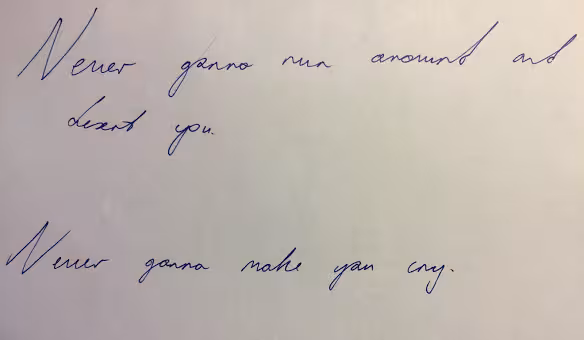 Never gonna run around and
desert you.
Never gonna make you cry.